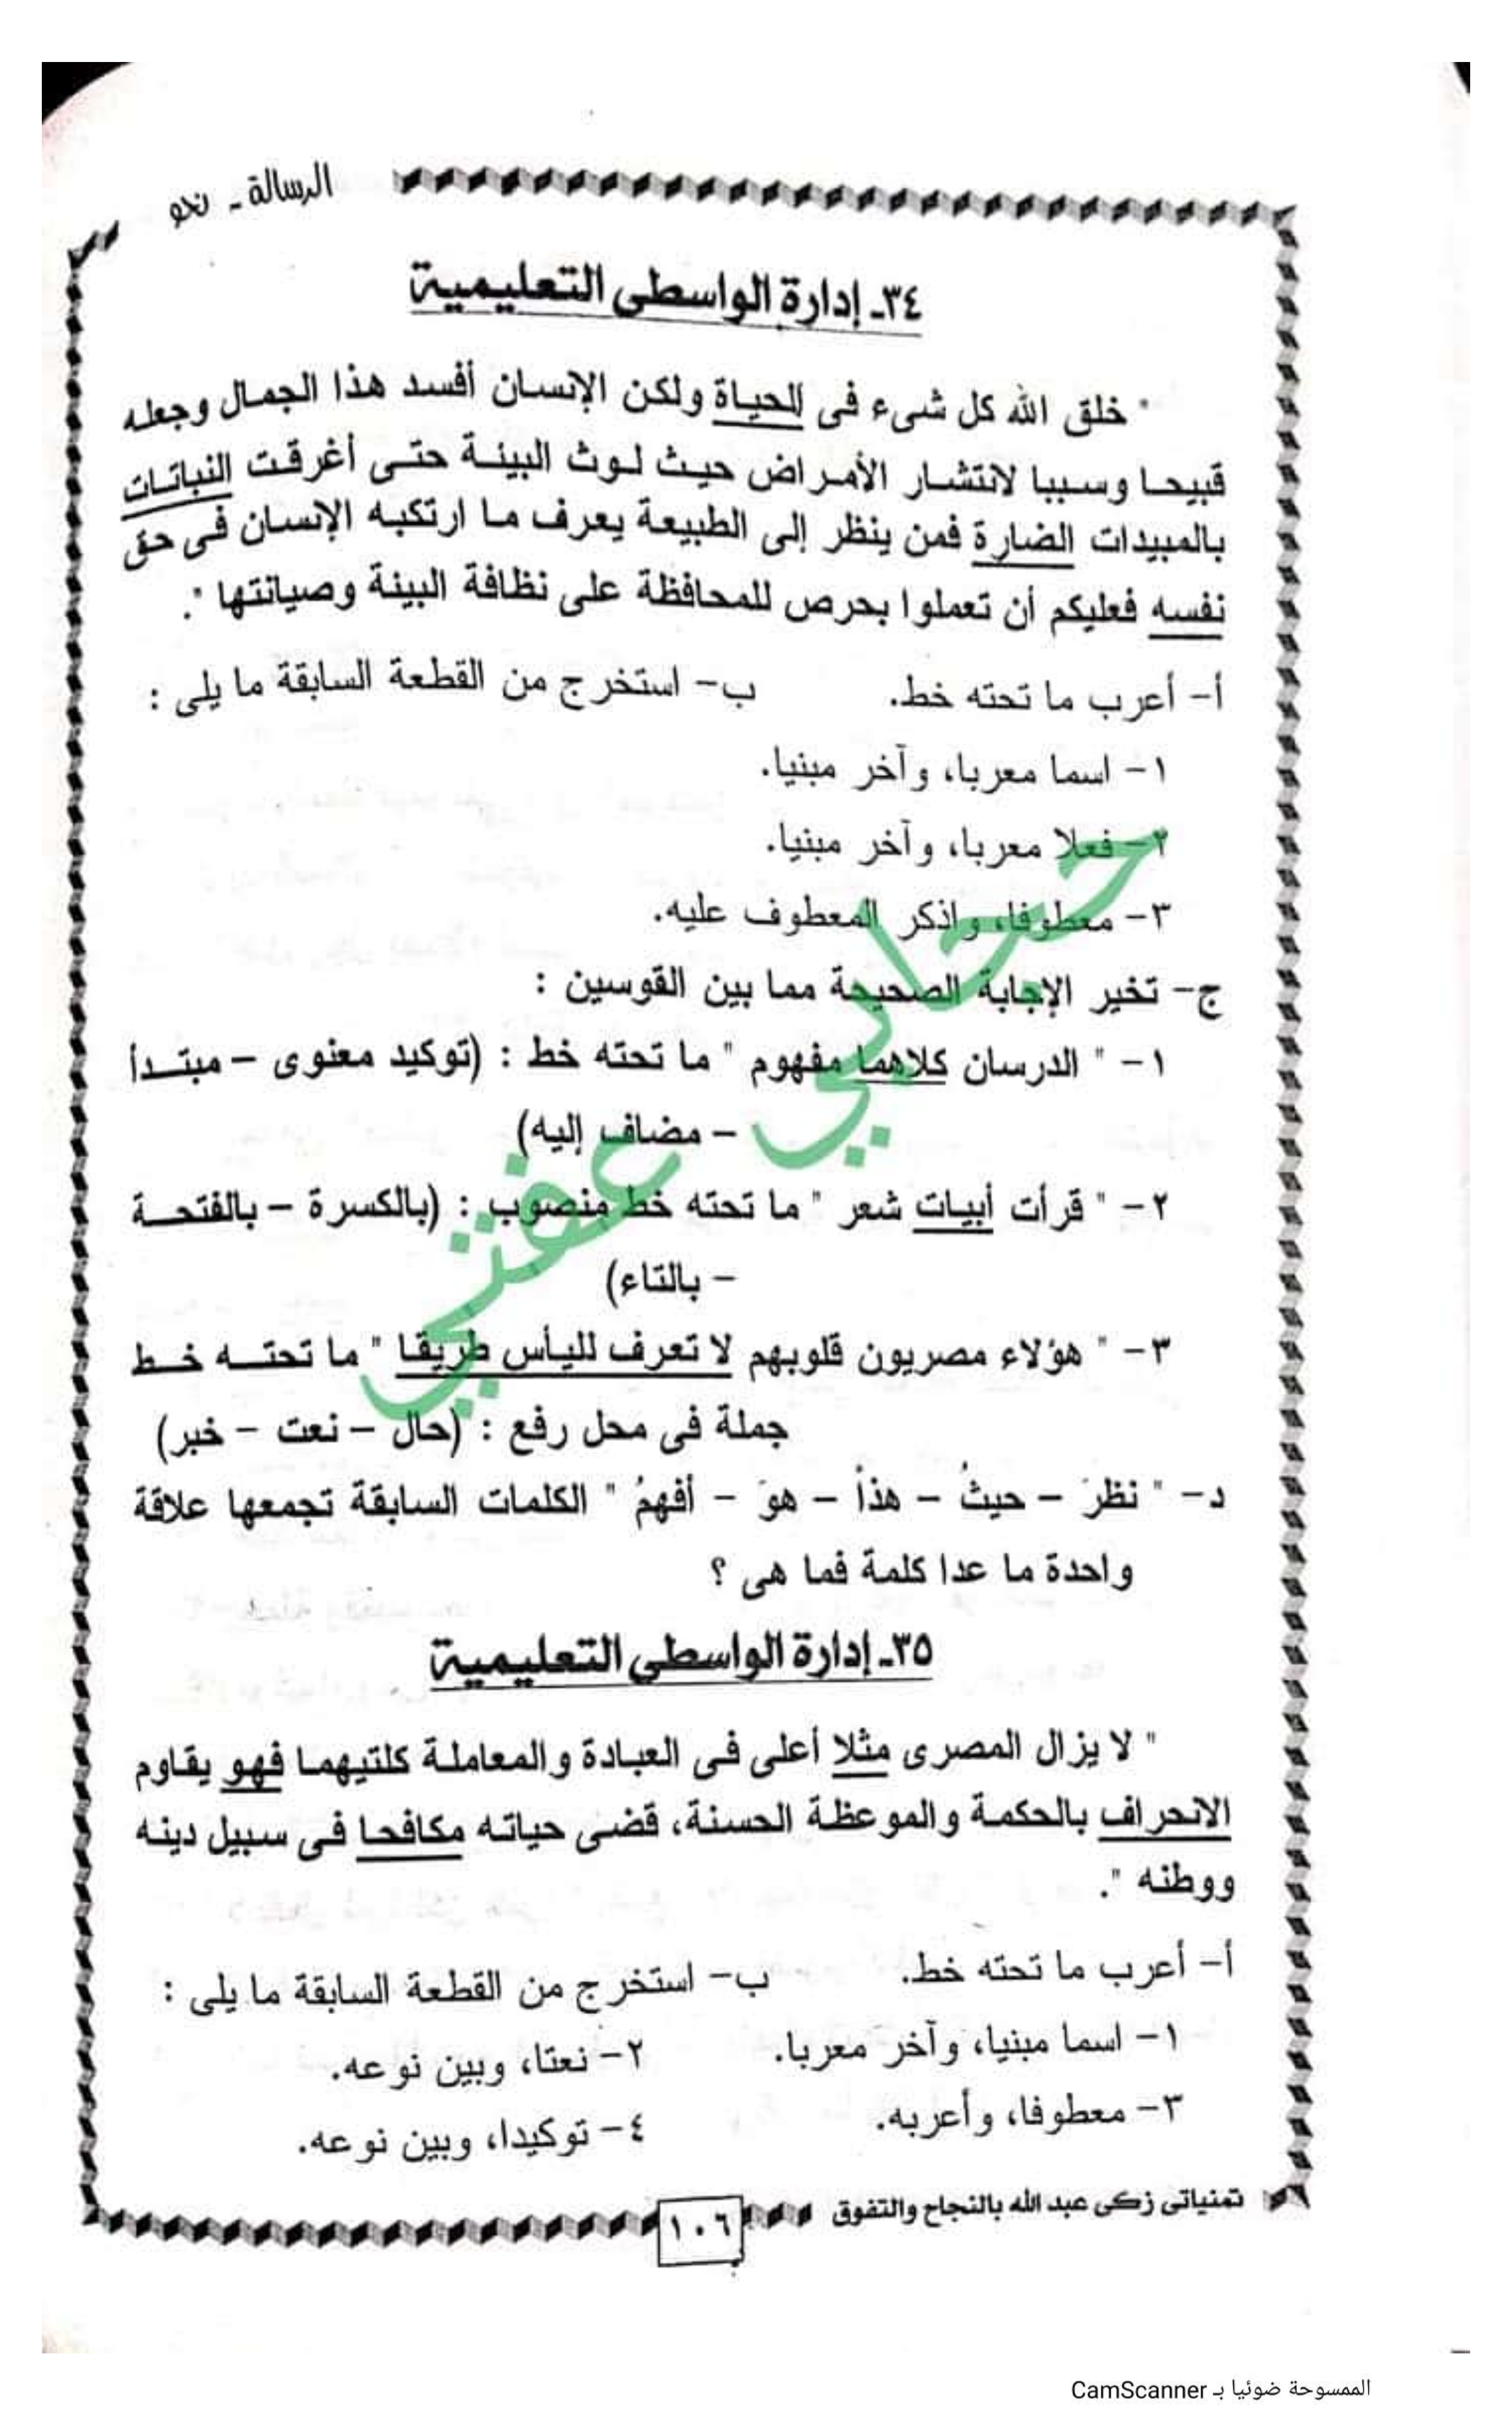 الرسالة ـ نحو
٣٤ـ إدارة الواسطى التعليمية
" خلق الله كل شىء فى الحياة ولكن الإنسان أفسد هذا الجمال وجعله
قبيحا وسببا لانتشار الأمراض حيث لوث البيئة حتى أغرقت النباتات
بالمبيدات الضارة فمن ينظر إلى الطبيعة يعرف ما ارتكبه الإنسان فى حق
نفسه فعليكم أن تعملوا بحرص للمحافظة على نظافة البيئة وصيانتها ".
أ- أعرب ما تحته خط. ب- استخرج من القطعة السابقة ما يلى :
١- اسما معربا، وآخر مبنيا.
٢- فعلا معربا، وآخر مبنيا.
٣- معطوفا، واذكر المعطوف عليه.
ج- تخير الإجابة الصحيحة مما بين القوسين :
١- " الدرسان كلاهما مفهوم " ما تحته خط : (توكيد معنوى – مبتدأ
– مضاف إليه)
٢- " قرأت أبيات شعر " ما تحته خط منصوب : (بالكسرة – بالفتحة
– بالتاء)
٣- " هؤلاء مصريون قلوبهم لا تعرف لليأس طريقا " ما تحته خط
جملة فى محل رفع : (حال – نعت – خبر)
د- " نظرَ – حيثُ – هذاْ – هوَ – أفهمُ " الكلمات السابقة تجمعها علاقة
واحدة ما عدا كلمة فما هى ؟
٣٥ـ إدارة الواسطي التعليمية
" لا يزال المصرى مثلا أعلى فى العبادة والمعاملة كلتيهما فهو يقاوم
الانحراف بالحكمة والموعظة الحسنة، قضى حياته مكافحا فى سبيل دينه
ووطنه ".
أ- أعرب ما تحته خط. ب- استخرج من القطعة السابقة ما يلى :
١- اسما مبنيا، وآخر معربا. ٢- نعتا، وبين نوعه.
٣- معطوفا، وأعربه. ٤- توكيدا، وبين نوعه.
تمنياتى زكى عبد الله بالنجاح والتفوق ١٠٦
الممسوحة ضوئيا بـ CamScanner